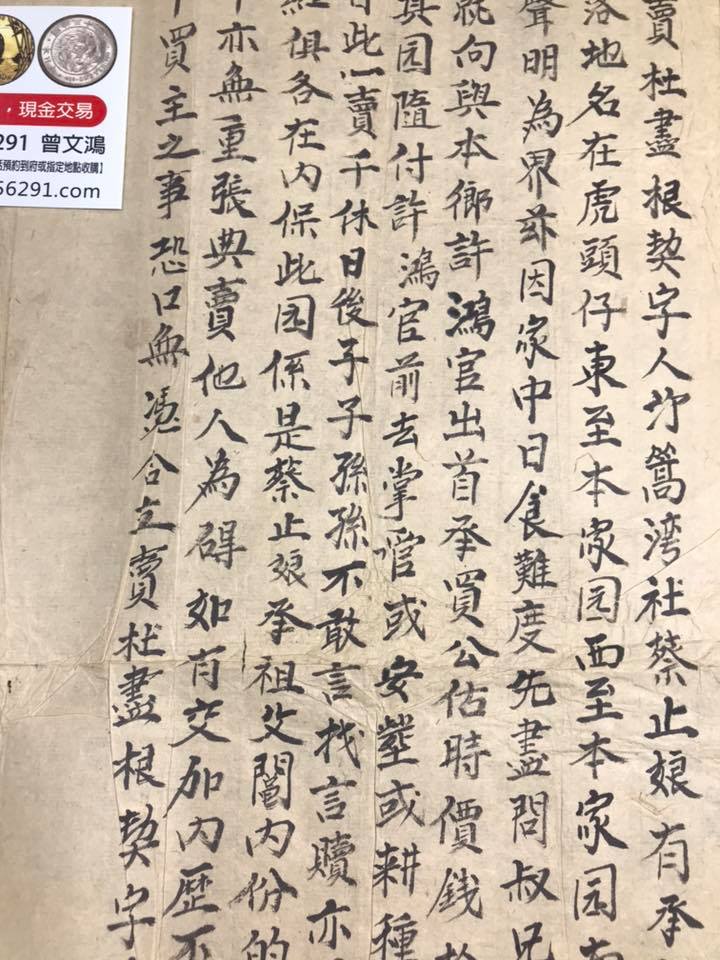 賣杜盡根契字人竹篙湾社蔡止娘有承
落地名在虎頭仔東至本家园西至本家园南
聲明為界茲因家中日食難度先盡問叔兄
就向與本鄉許鴻官出首承買公估時價錢
其园隨付許鴻官前去掌管或安葬或耕種
此一賣千休日後子子孫孫不敢言找言贖亦
俱各在内保此园係是蔡止娘承祖父鬮内份的
亦無重張典賣他人為碍如有交加内歷不
買主之事恐口無憑合立賣杜盡根契字
，現金交易
291 曾文鴻
預約到府或指定地點收購】
56291.com